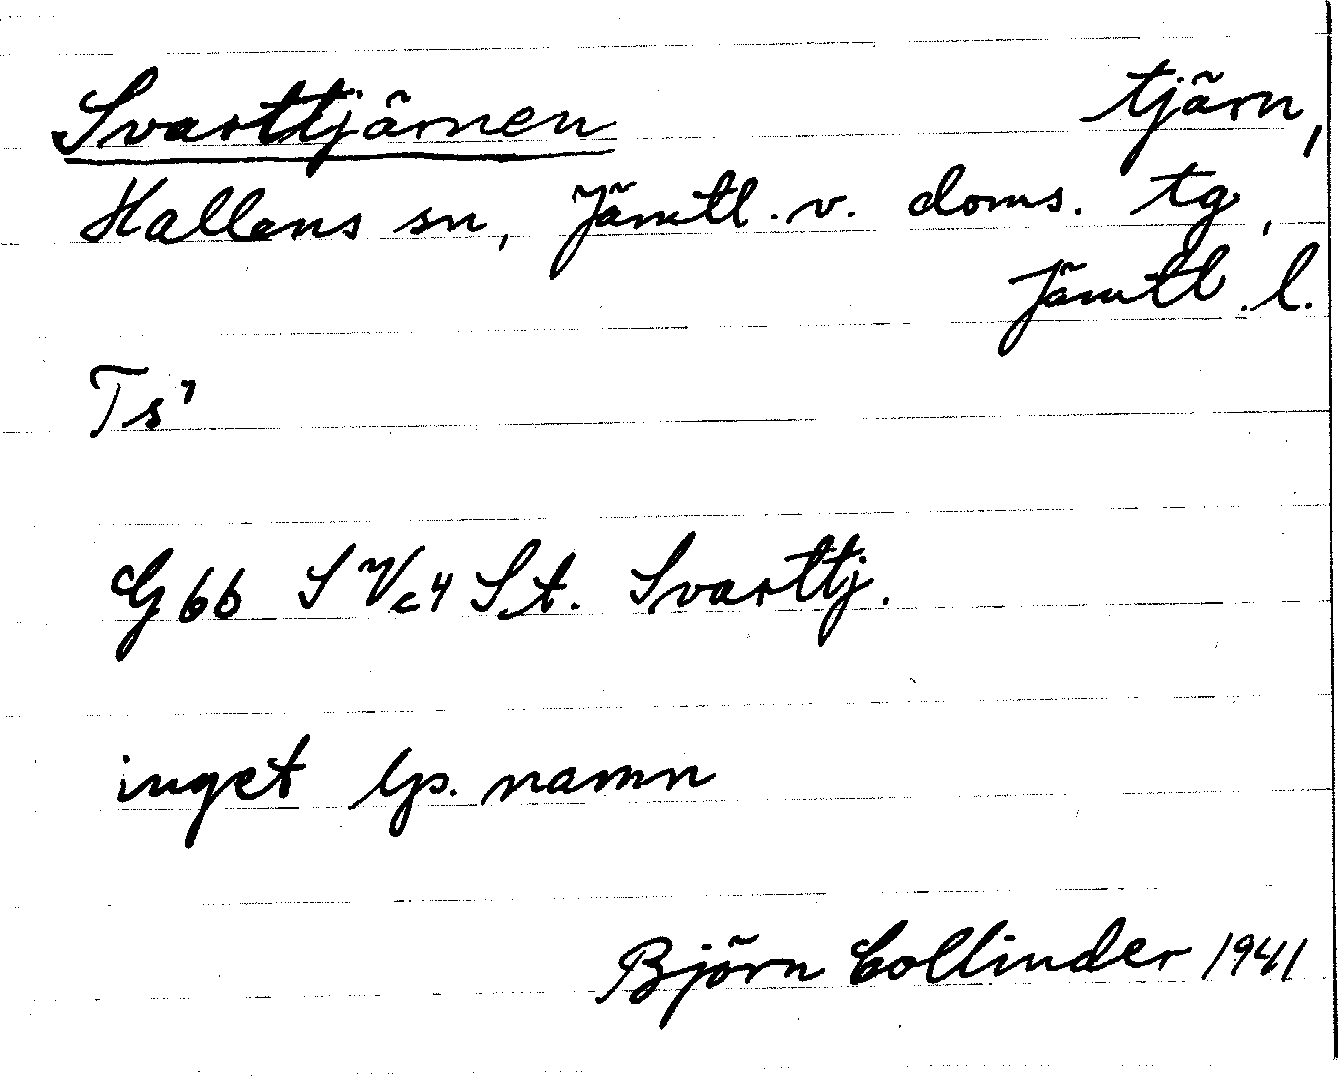 Svarttjärnen tjärn,
Hallens sn, Jämtl. v. doms. tg,
Jämtl. l.
Ts'
G66 SVc4 St. Svarttj.
inget lp. namn
Björn Collinder 1941